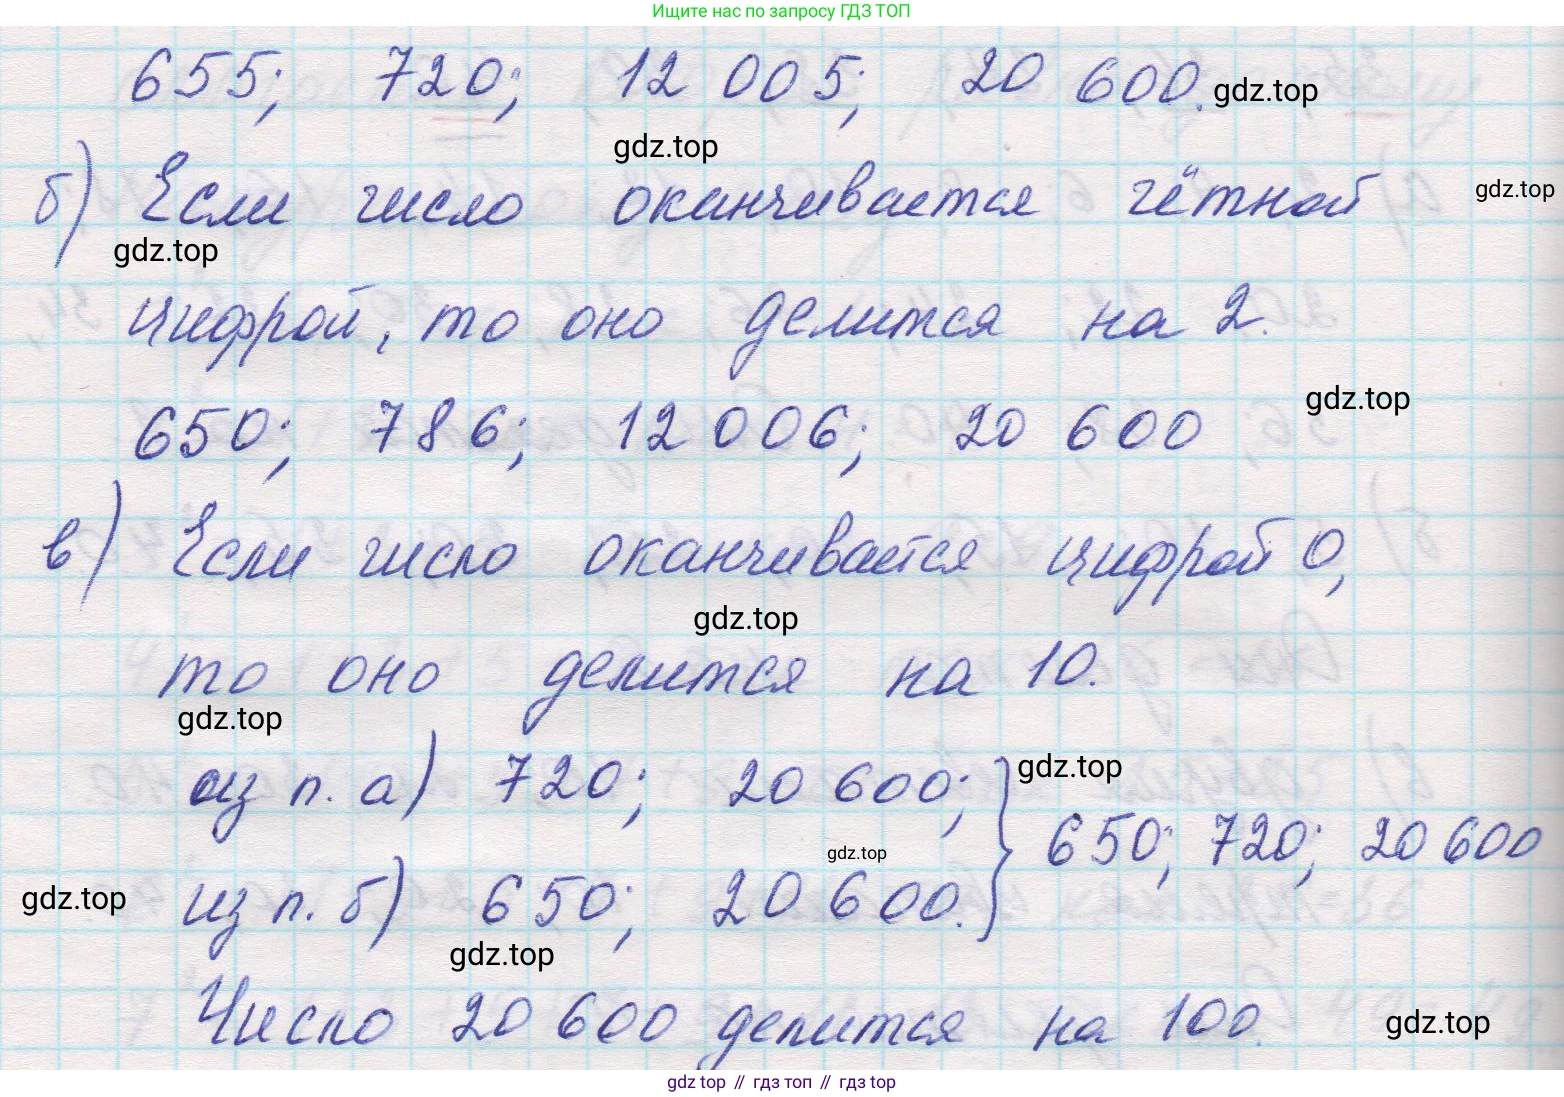 Ищите нас по запросу ГДЗ ТОП
655; 720; 12 005; 20 600. gdz.top
gdz.top
б) Если число оканчивается чётной gdz.top
gdz.top
цифрой, то оно делится на 2.
gdz.top
650; 786; 12 006; 20 600
в) Если число оканчивается цифрой 0,
gdz.top
то оно делится на 10.
gdz.top
из п. а) 720; 20 600; gdz.top
650; 720; 20 600
gdz.top
gdz.top из п. б) 650; 20 600.
gdz.top
Число 20 600 делится на 100. gdz.top
gdz top // гдз топ // гдз top